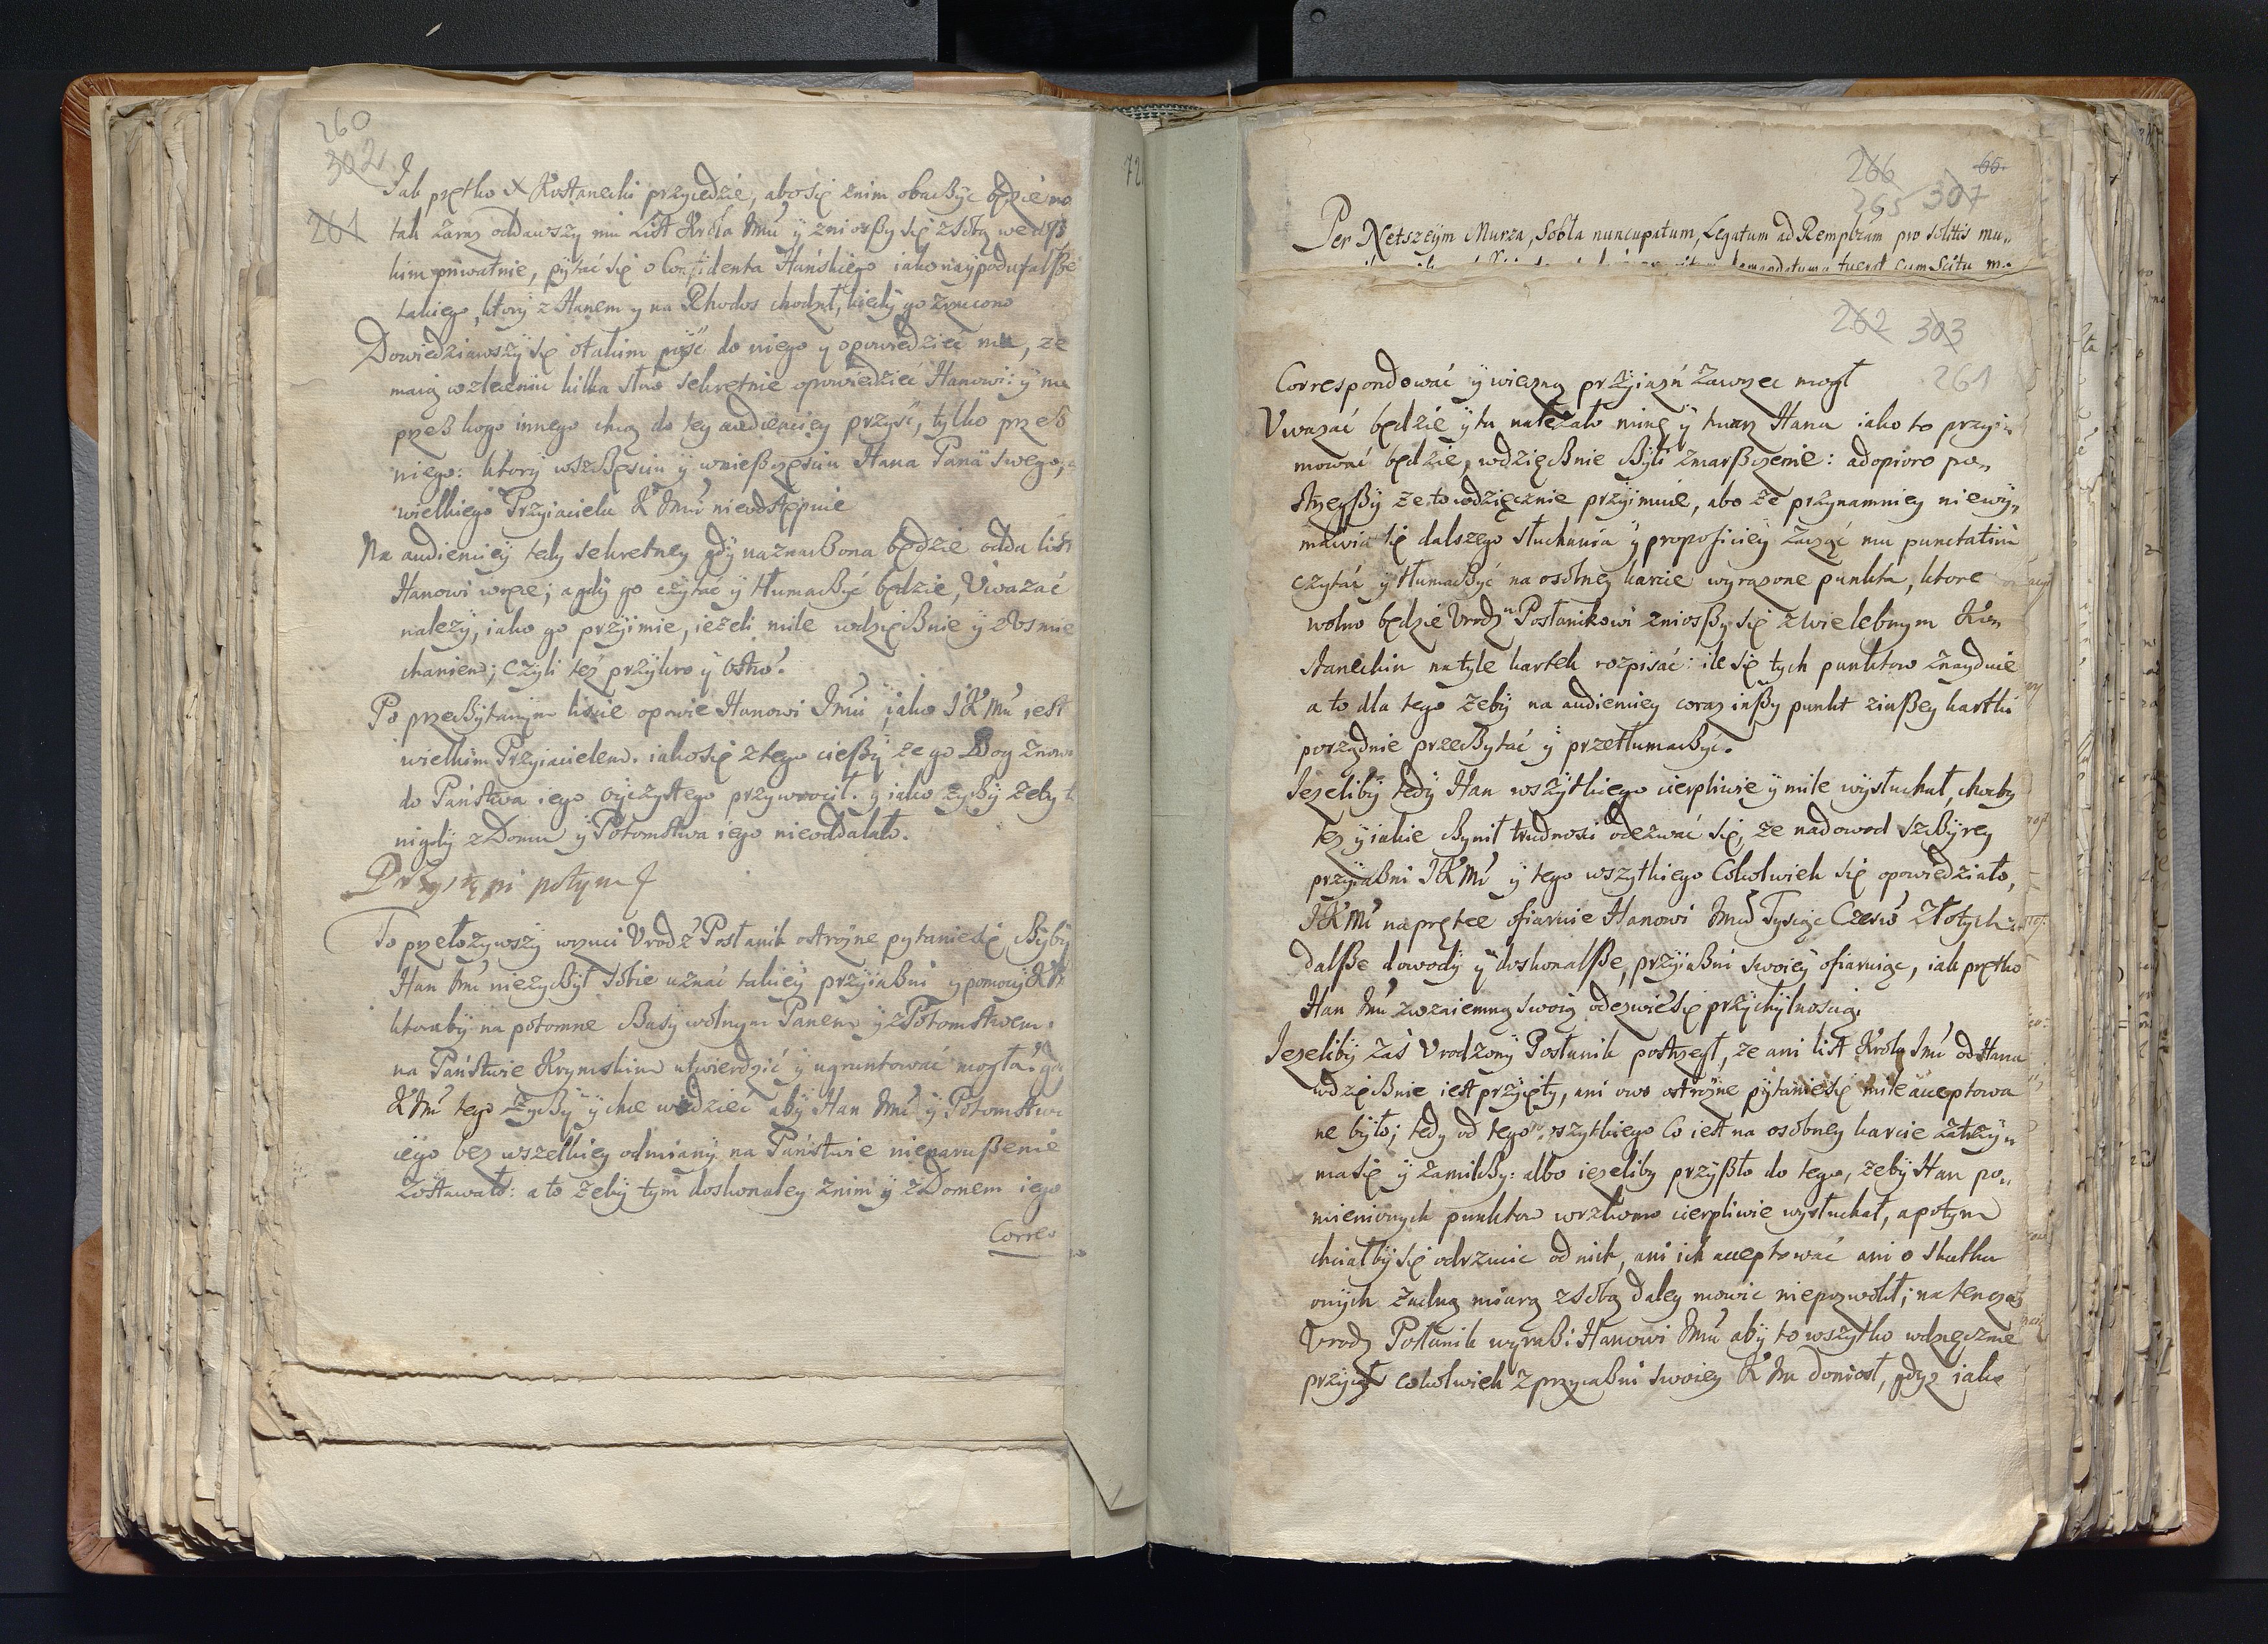 260
302
261
Jak prętko X Kostanecki przyiedzie, abo się znim obaczyć będzie mo
tak zaraz oddawszy mu List Krola Jmći ÿ zniosßy się zsobą wedß
kim priwatnie, pÿtać się o Confidenta Hańskiego iako naÿpodufalße
takiego, ktorÿ z Hanem y na Rhodos chodził, kiedÿ go zrucono
Dowiedziawszÿ się otakim pÿść do niego y opowiedzieć mu, ze
maią wzleceniu kilka słow sekretnie opowiedzieć Hanowi: ÿ nie
przeß kogo innego chcą do teÿ audiencieÿ przÿść, tÿlko przeß
niego: ktorÿ wszczęsciu ÿ wnießczęsciu Hana Pana swego,
wielkiego Przÿiaciela K Jmći nieodstępuie
Na audiencieÿ tedy sekretneÿ gdÿ naznaczona będzie odda list
Hanowi wręce; a gdÿ go czytać ÿ tłumaczÿć będzie, Vważać
należÿ, iako go przÿimie, ieżeli mile wdzięcznie ÿ z Vsmie
chaniem; czyli też przÿkro ÿ ostro.
Po przeczÿtanÿm liście opowie Hanowi Jmći, iako J K Mć iest
wielkim Przyiacielem. iako się z tego cießÿ że go Bog znowu
do Państwa iego oÿczÿstego przÿwrocił. ÿ iako zÿczÿ żebÿ
nigdÿ z Domu ÿ Potomstwa iego nieoddalało.
Przystąpi potym
To przełozywszÿ wrzuci Vrodź Posłanik ostrożne pytanie się, czÿbÿ
Han Jmć nieżyczÿł sobie uznać takieÿ przÿiaźni y pomocÿ K
ktorabÿ na potomne czasÿ wolnÿm Panem ÿ z Potomstwem
na Państwie Krymskim utwierdzić ÿ ugruntować mogła: gdÿ
K Mć tego życzÿ ÿ chce widzieć abÿ Han Jmć ÿ Potomstwo
iego bez wszelkieÿ odmianÿ na Państwie nienarußenie
zostawało: a to żebÿ tÿm doskonaleÿ znim ÿ z Domem iego
Corres
72
266 65.
265 307
Per Netszeÿm Murza, Sobla nuncupatum, Legatum ad Rempbcam pro solitis mu„
262 303
261
Correspondować ÿ wieczną przÿiaźń zawrzec mogł
Vważać będzie ÿ tu należało minę ÿ twarz Hana iako to przÿi„
mować będzie, wdzięcznie czÿli zmarßczenie: a dopioro po„
strzegßÿ że to wdzięcznie przÿimuie, abo że przÿnamnieÿ niewÿ„
mawia się dalszego słuchania ÿ proposicieÿ zacząć mu punctatim
czÿtać ÿ tłumaczÿć na osobneÿ karcie wyrazone punkta, ktore
wolno będzie Vrodz Posłanikowi zniosßy się z wielebnym Kon„
staneckim na tÿle kartek rozpisać: ile się tych punktow znayduie
a to dla tego żebÿ na audiencieÿ coraz inßÿ punkt z inßeÿ kartki
porządnie przeczÿtać ÿ przetłumaczÿć.
Jeżelibÿ tedÿ Han wszÿtkiego cierpliwie ÿ mile wÿsłuchał, choćby
też ÿ iakie czynił trudnosci odezwać się, że na dowod szczÿreÿ
przÿiaźni J K Mć ÿ tego wszytkiego Cokolwiek się opowiedziało,
J K Mć naprętce ofiaruie Hanowi Jmći Tysiąc Czerw Złotych
dalsße dowodÿ ÿ doskonalsße, przÿiaźni swoieÿ ofiaruiąc, iak prętko
Han Jmć zwzaiemną swoią odezwie się przÿchÿlnoscią.
Jezelibÿ zaś Vrodzonÿ Posłanik postrzegł, że ani list Krola Jmći od Hana
wdzięcznie iest przÿięty, ani owo ostrożne pÿtanie się mile acceptowa
ne bÿło; tedy od tego wszÿtkiego Co iest na osobneÿ karcie zatrzÿ„
ma się ÿ zamilczÿ: albo ieżelibÿ przÿßło do tego, żebÿ Han po„
mienionÿch punktow wrzkomo cierpliwie wÿsłuchał, a potÿm
chciałbÿ się odrzucic od nich, ani ich acceptować ani o skutku
onÿch żadną miarą z sobą daleÿ mowic niepozwolił; na tenczas
Vrodz Posłanik wyrazi Hanowi Jmći abÿ to wszÿtko wdzięcznie
przÿiął cokolwiek z przÿiaźni swoieÿ K Jmć doniosł, gdÿż iako